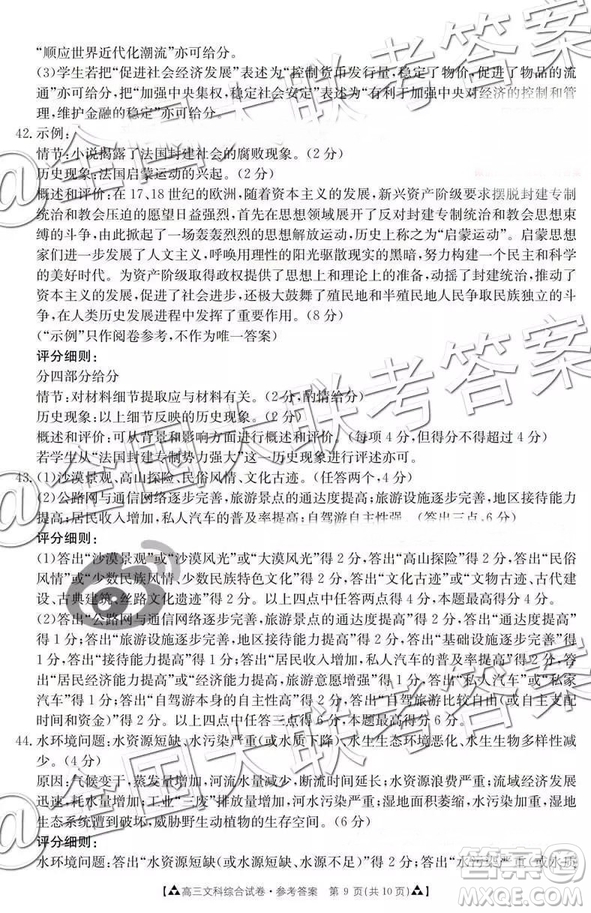 “顺应世界近代化潮流”亦可给分。
(3)学生若把“促进社会经济发展”表述为“控制货币发行量,稳定了物价,促进了物品的流
通”亦可给分,把“加强中央集权,稳定社会”表述为“有利于加强中央对经济的控制和管
理,维护金融的稳定”亦可给分。
42. 示例:
情节:小说揭露了法国封建社会的腐败现象。(2分)
历史现象:法国启蒙运动的兴起。(2分)
概述和评价:在17、18世纪的欧洲,随着资本主义的发展,新兴资产阶级要求摆脱封建专制
统治和教会压迫的愿望日益强烈,首先在思想领域展开了反封建专制统治和教会思想束
缚的斗争,由此掀起了一场轰轰烈烈的思想解放运动,历史上称之为“启蒙运动”。启蒙思想
家们进一步发展了人文主义,呼唤用理性的阳光驱散现实的黑暗,构建一个民主和科学
的美好时代。为资产阶级取得政权提供了思想上和理论上的准备,动摇了封建统治,推动了
资本主义的发展,还极大鼓舞了殖民地和半殖民地人民为争取民族独立的斗
争,在人类历史发展进程中发挥了重要作用。(8分)
(“示例”只作阅卷参考,不作为唯一答案)
评分细则:
分四部分给分
情节:对材料细节提取应与材料有关。(2分,酌情给分)
历史现象:以上细节反映的历史现象。(2分)
概述和评价:可从背景和影响方面入手,言之有理即可。(每项4分,两项得8分)
若学生从“法国封建专制势力强大”这一历史现象进行评述亦可。
43. (1)沙漠景观、高山探险、民俗风情、文化古迹。(任答两个,4分)
(2)公路网与通信网络逐步完善;旅游景点的通达度提高;旅游设施逐步完善,接待能力
提高;居民收入增加,私人汽车的普及率提高;自驾游自主性强。(答出三点,6分)
评分细则:
(1)答出“沙漠景观”或“沙漠风光”或“大漠风光”得2分,答出“高山探险”得2分,答出“民俗
风情”或“少数民族风情”或“少数民族特色文化”得2分,答出“文化古迹”或“文物古迹、古代建
设、古典建筑、丝路文化遗迹”得2分。以上四点中任答两点得4分,本题最高得分4分。
(2)答出“公路网与通信网络逐步完善”得2分,答出“旅游景点的通达度提高”
得1分;答出“旅游设施逐步完善”得1分,答出“接待能力提高”得1分,答出“基础设施逐步完善”得
1分;答出“居民收入增加,私人汽车的普及率提高”得2分,答出“居民收入增加”得1
分,答出“居民经济能力提高”得1分,答出“旅游意愿增强”得1分,答出“私人汽车”或“私家
汽车”得1分;答出“自驾游自主性强”得2分,答出“自驾游旅游比较自由(或自主)(或
时间和资金)”得2分。以上四点中任答三点得6分,本题最高得分6分。
44. 水环境问题:水资源短缺、水污染严重(或水质下降)、水生生态环境恶化、水生生物多样性减
少。(4分)
原因:气候变干,蒸发量增加,河流水量减少;人口增长,需水量大;水资源浪费严重;流域经济发展
迅速,耗水量增加;工业“三废”排放量增加,河水污染严重;水污染严重,湿地
生态系统遭到破坏,威胁野生动植物的生存空间。(6分)
评分细则:
水环境问题:答出“水资源短缺(或水短缺)”得1分,答出“水污染严重(或水质
高三文科综合试卷·参考答案 第9页(共10页)
@全国大联考答案